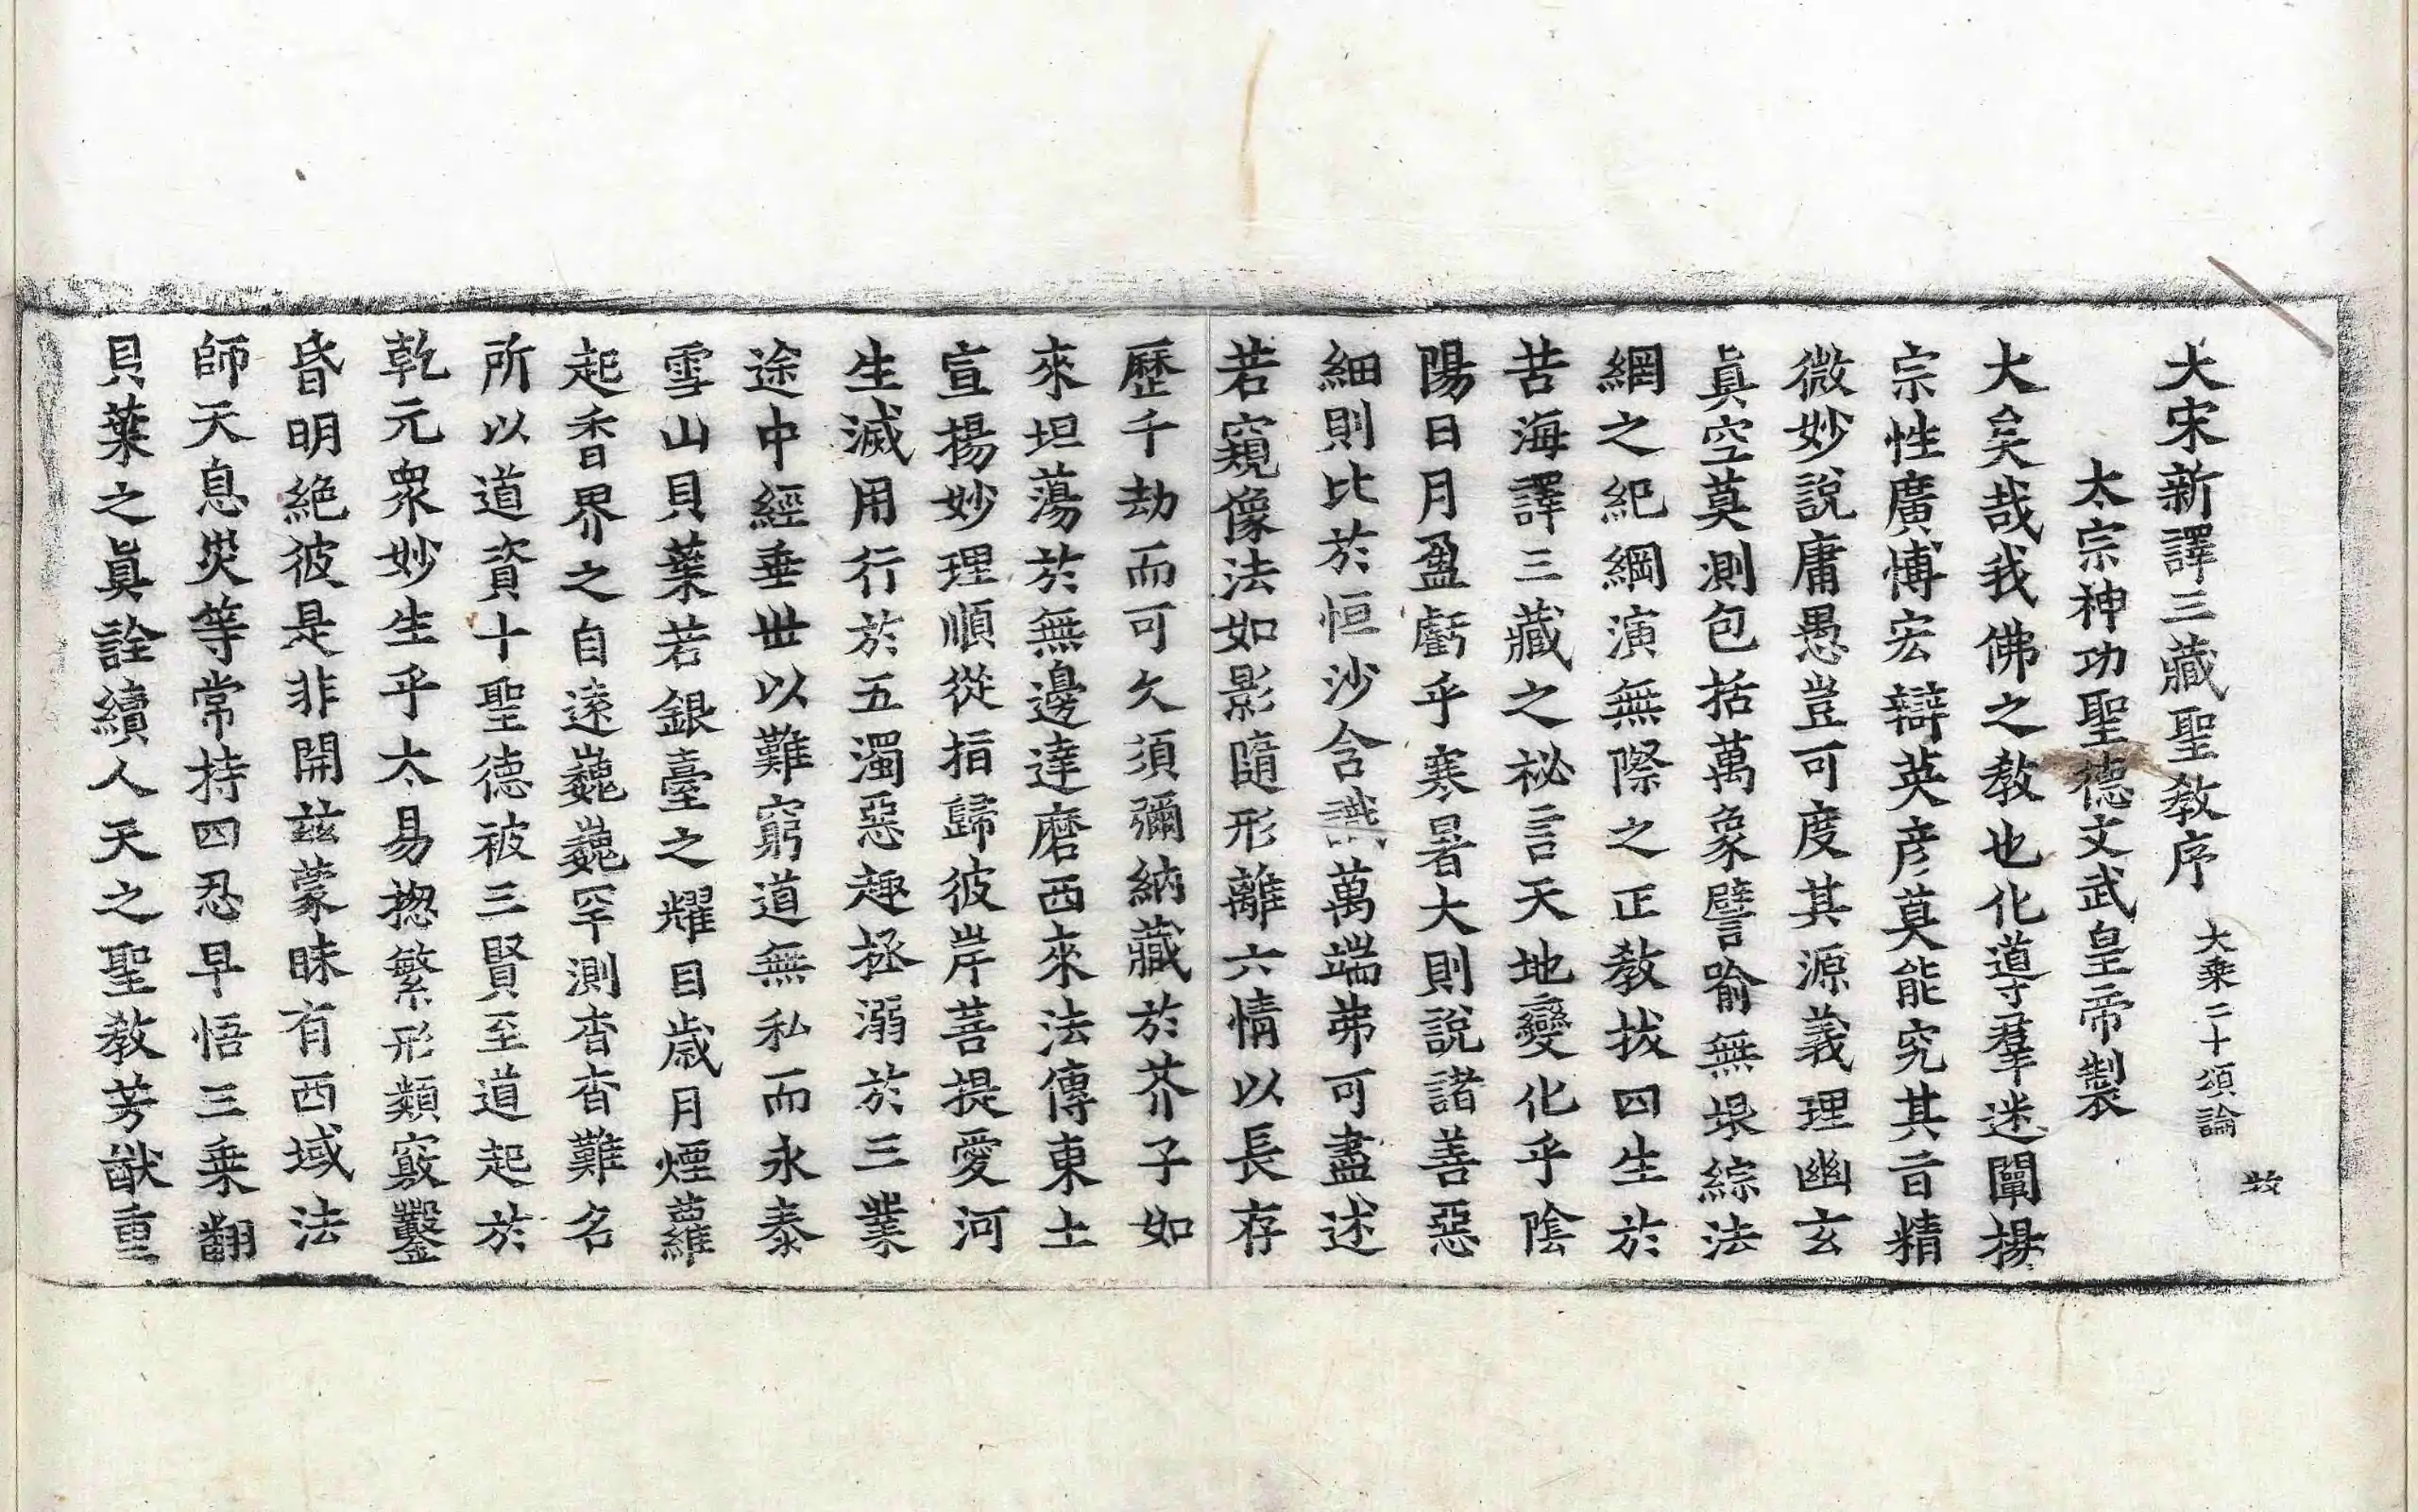 大宋新譯三藏聖教序 大乘二十頌論 敢
太宗神功聖德文武皇帝製
大矣哉我佛之教也化導羣迷闡揚
宗性廣博宏辯英彦莫能究其旨精
微妙說庸愚豈可度其源義理幽玄
眞空莫測包括萬象譬喻無垠綜法
網之紀綱演無際之正教拔四生於
苦海譯三藏之祕言天地變化乎陰
陽日月盈虧乎寒暑大則說諸善惡
細則比於恒沙含識萬端弗可盡述
若窺像法如影隨形離六情以長存
歷千劫而可久須彌納藏於芥子如
來坦蕩於無邊達磨西來法傳東土
宣揚妙理順從指歸彼岸菩提愛河
生滅用行於五濁惡趣拯溺於三業
途中經垂世以難窮道無私而永泰
雪山貝葉若銀臺之耀目歲月煙蘿
起香界之自遠巍巍罕測杳杳難名
所以道資十聖德被三賢至道起於
乾元衆妙生乎太易揔繁形類竅鑿
昏明絶彼是非開茲蒙昧有西域法
師天息災等常持四忍早悟三乘翻
貝葉之眞詮續人天之聖教芳猷重